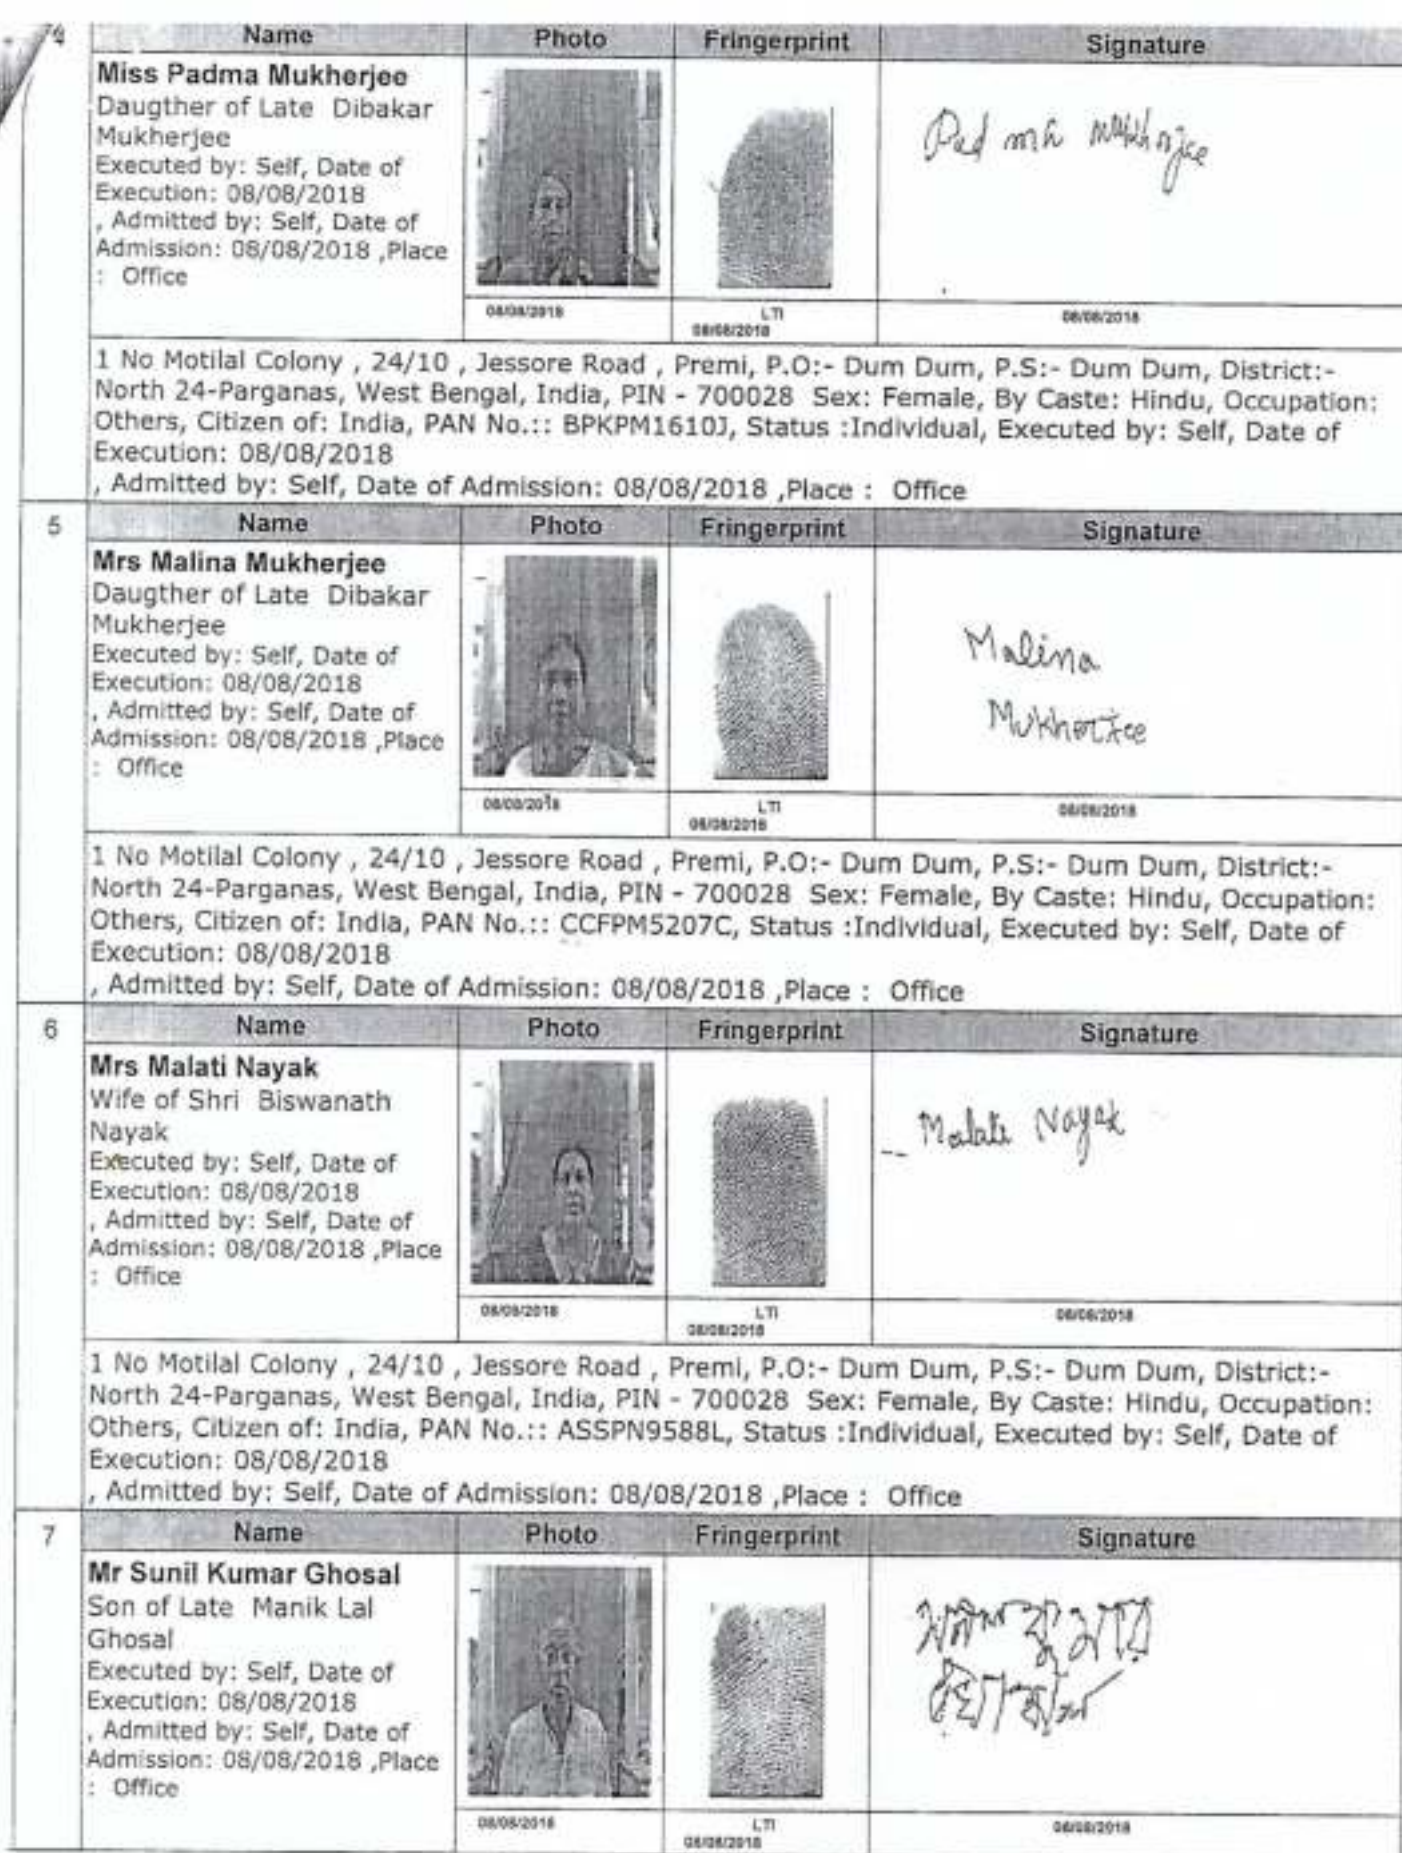 4
Name Photo Fringerprint Signature
Miss Padma Mukherjee
Daugther of Late Dibakar
Mukherjee
Executed by: Self, Date of
Execution: 08/08/2018
, Admitted by: Self, Date of
Admission: 08/08/2018 ,Place
: Office
Padma Mukherjee
08/08/2018 LTI 08/08/2018
08/08/2018
1 No Motilal Colony , 24/10 , Jessore Road , Premi, P.O:- Dum Dum, P.S:- Dum Dum, District:-
North 24-Parganas, West Bengal, India, PIN - 700028 Sex: Female, By Caste: Hindu, Occupation:
Others, Citizen of: India, PAN No.:: BPKPM1610J, Status :Individual, Executed by: Self, Date of
Execution: 08/08/2018
, Admitted by: Self, Date of Admission: 08/08/2018 ,Place : Office
5 Name Photo Fringerprint Signature
Mrs Malina Mukherjee
Daugther of Late Dibakar
Mukherjee
Executed by: Self, Date of
Execution: 08/08/2018
, Admitted by: Self, Date of
Admission: 08/08/2018 ,Place
: Office
Malina
Mukherjee
08/08/2018 LTI 08/08/2018
08/08/2018
1 No Motilal Colony , 24/10 , Jessore Road , Premi, P.O:- Dum Dum, P.S:- Dum Dum, District:-
North 24-Parganas, West Bengal, India, PIN - 700028 Sex: Female, By Caste: Hindu, Occupation:
Others, Citizen of: India, PAN No.:: CCFPM5207C, Status :Individual, Executed by: Self, Date of
Execution: 08/08/2018
, Admitted by: Self, Date of Admission: 08/08/2018 ,Place : Office
6 Name Photo Fringerprint Signature
Mrs Malati Nayak
Wife of Shri Biswanath
Nayak
Executed by: Self, Date of
Execution: 08/08/2018
, Admitted by: Self, Date of
Admission: 08/08/2018 ,Place
: Office
Malati Nayak
08/08/2018 LTI 08/08/2018
08/08/2018
1 No Motilal Colony , 24/10 , Jessore Road , Premi, P.O:- Dum Dum, P.S:- Dum Dum, District:-
North 24-Parganas, West Bengal, India, PIN - 700028 Sex: Female, By Caste: Hindu, Occupation:
Others, Citizen of: India, PAN No.:: ASSPN9588L, Status :Individual, Executed by: Self, Date of
Execution: 08/08/2018
, Admitted by: Self, Date of Admission: 08/08/2018 ,Place : Office
7 Name Photo Fringerprint Signature
Mr Sunil Kumar Ghosal
Son of Late Manik Lal
Ghosal
Executed by: Self, Date of
Execution: 08/08/2018
, Admitted by: Self, Date of
Admission: 08/08/2018 ,Place
: Office
কুমার
08/08/2018 LTI 08/08/2018
08/08/2018